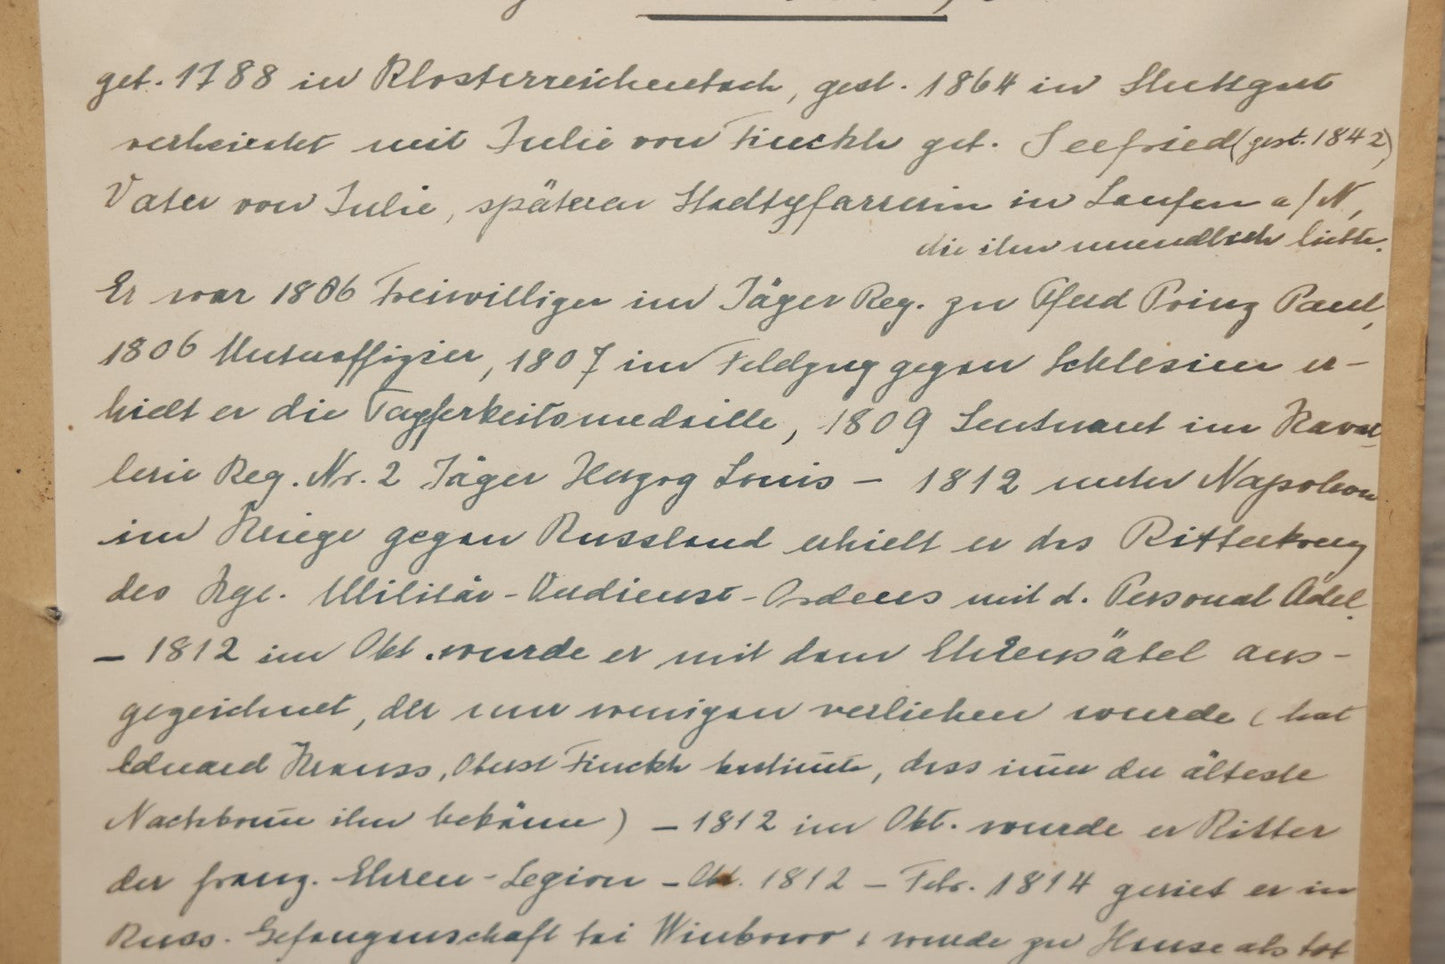 geb. 1788 in Klosterreichenbach, gest. 1864 in Stuttgart
verheiratet mit Julie von Finckh geb. Seefried (gest. 1842)
Vater von Julie, späteren Stadtpfarrerin in Laufen a/N,
die ihn unendlich liebte.
Er war 1806 Freiwilliger im Jäger Reg. zu Pferd Prinz Paul,
1806 Unteroffizier, 1807 im Feldzug gegen Schlesien er-
hielt er die Tapferkeitsmedaille, 1809 Leutnant im Kaval-
lerie Reg. Nr. 2 Jäger Herzog Louis – 1812 unter Napoleon
im Kriege gegen Russland erhielt er das Ritterkreuz
des Kgl. Militär-Verdienst-Ordens mit d. Personal Adel.
– 1812 im Okt. wurde er mit dem Ehrensäbel aus-
gezeichnet, der nur wenigen verliehen wurde (hat
Eduard Krauss, Oberst Finckh bestimmt, dass immer der älteste
Nachkomme ihn bekäme) – 1812 im Okt. wurde er Ritter
der franz. Ehren-Legion – Okt. 1812 – Febr. 1814 geriet er in
Russ. Gefangenschaft bei wurde zu Hause als tot